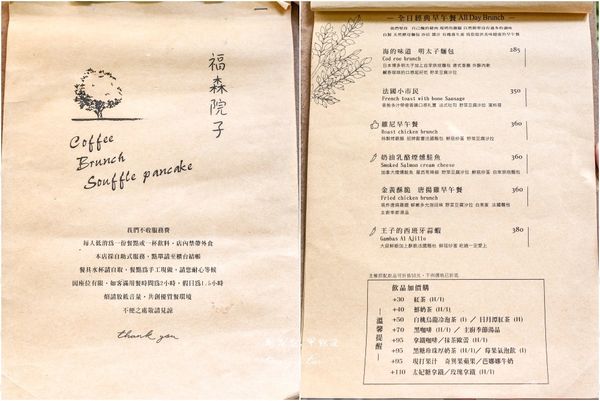 福森院子
Coffee
Brunch
Souffle pancake
我們不收服務費
每人低消為一份餐點或一杯飲料，店內禁帶外食
本店採自助式服務，點單請至櫃台結帳
餐具水杯請自取，餐點為手工現做，請您耐心等候
因座位有限，如客滿用餐時間為2小時，假日為1.5小時
煩請放低音量，共創優質餐環境
不便之處敬請見諒
thank you
全日經典早午餐 All Day Brunch
海的味道 明太子麵包 285
Cod roe brunch
法國小市民 350
French toast with bone Sausage
維尼早午餐 360
Roast chicken brunch
奶油乳酪煙燻鮭魚 360
Smoked Salmon cream cheese
金黃酥脆 唐揚雞早午餐 360
Fried chicken brunch
王子的西班牙蒜蝦 380
Gambas Al Ajillo
飲品加價購
溫馨提醒
+30 紅茶 (H/I)
+40 鮮奶茶 (H/I)
+50 白桃烏龍冷泡茶 (I) / 日月潭紅茶 (H)
+70 黑咖啡 (H/I) / 主廚季節湯品
+95 拿鐵咖啡/抹茶歐蕾 (H/I)
+95 黑糖珍珠厚奶茶 (H/I)/ 莓果氣泡飲 (I)
+95 現打果汁 奇異果蘋果/芭娜娜牛奶
+110 太妃糖拿鐵/玫瑰拿鐵 (H/I)